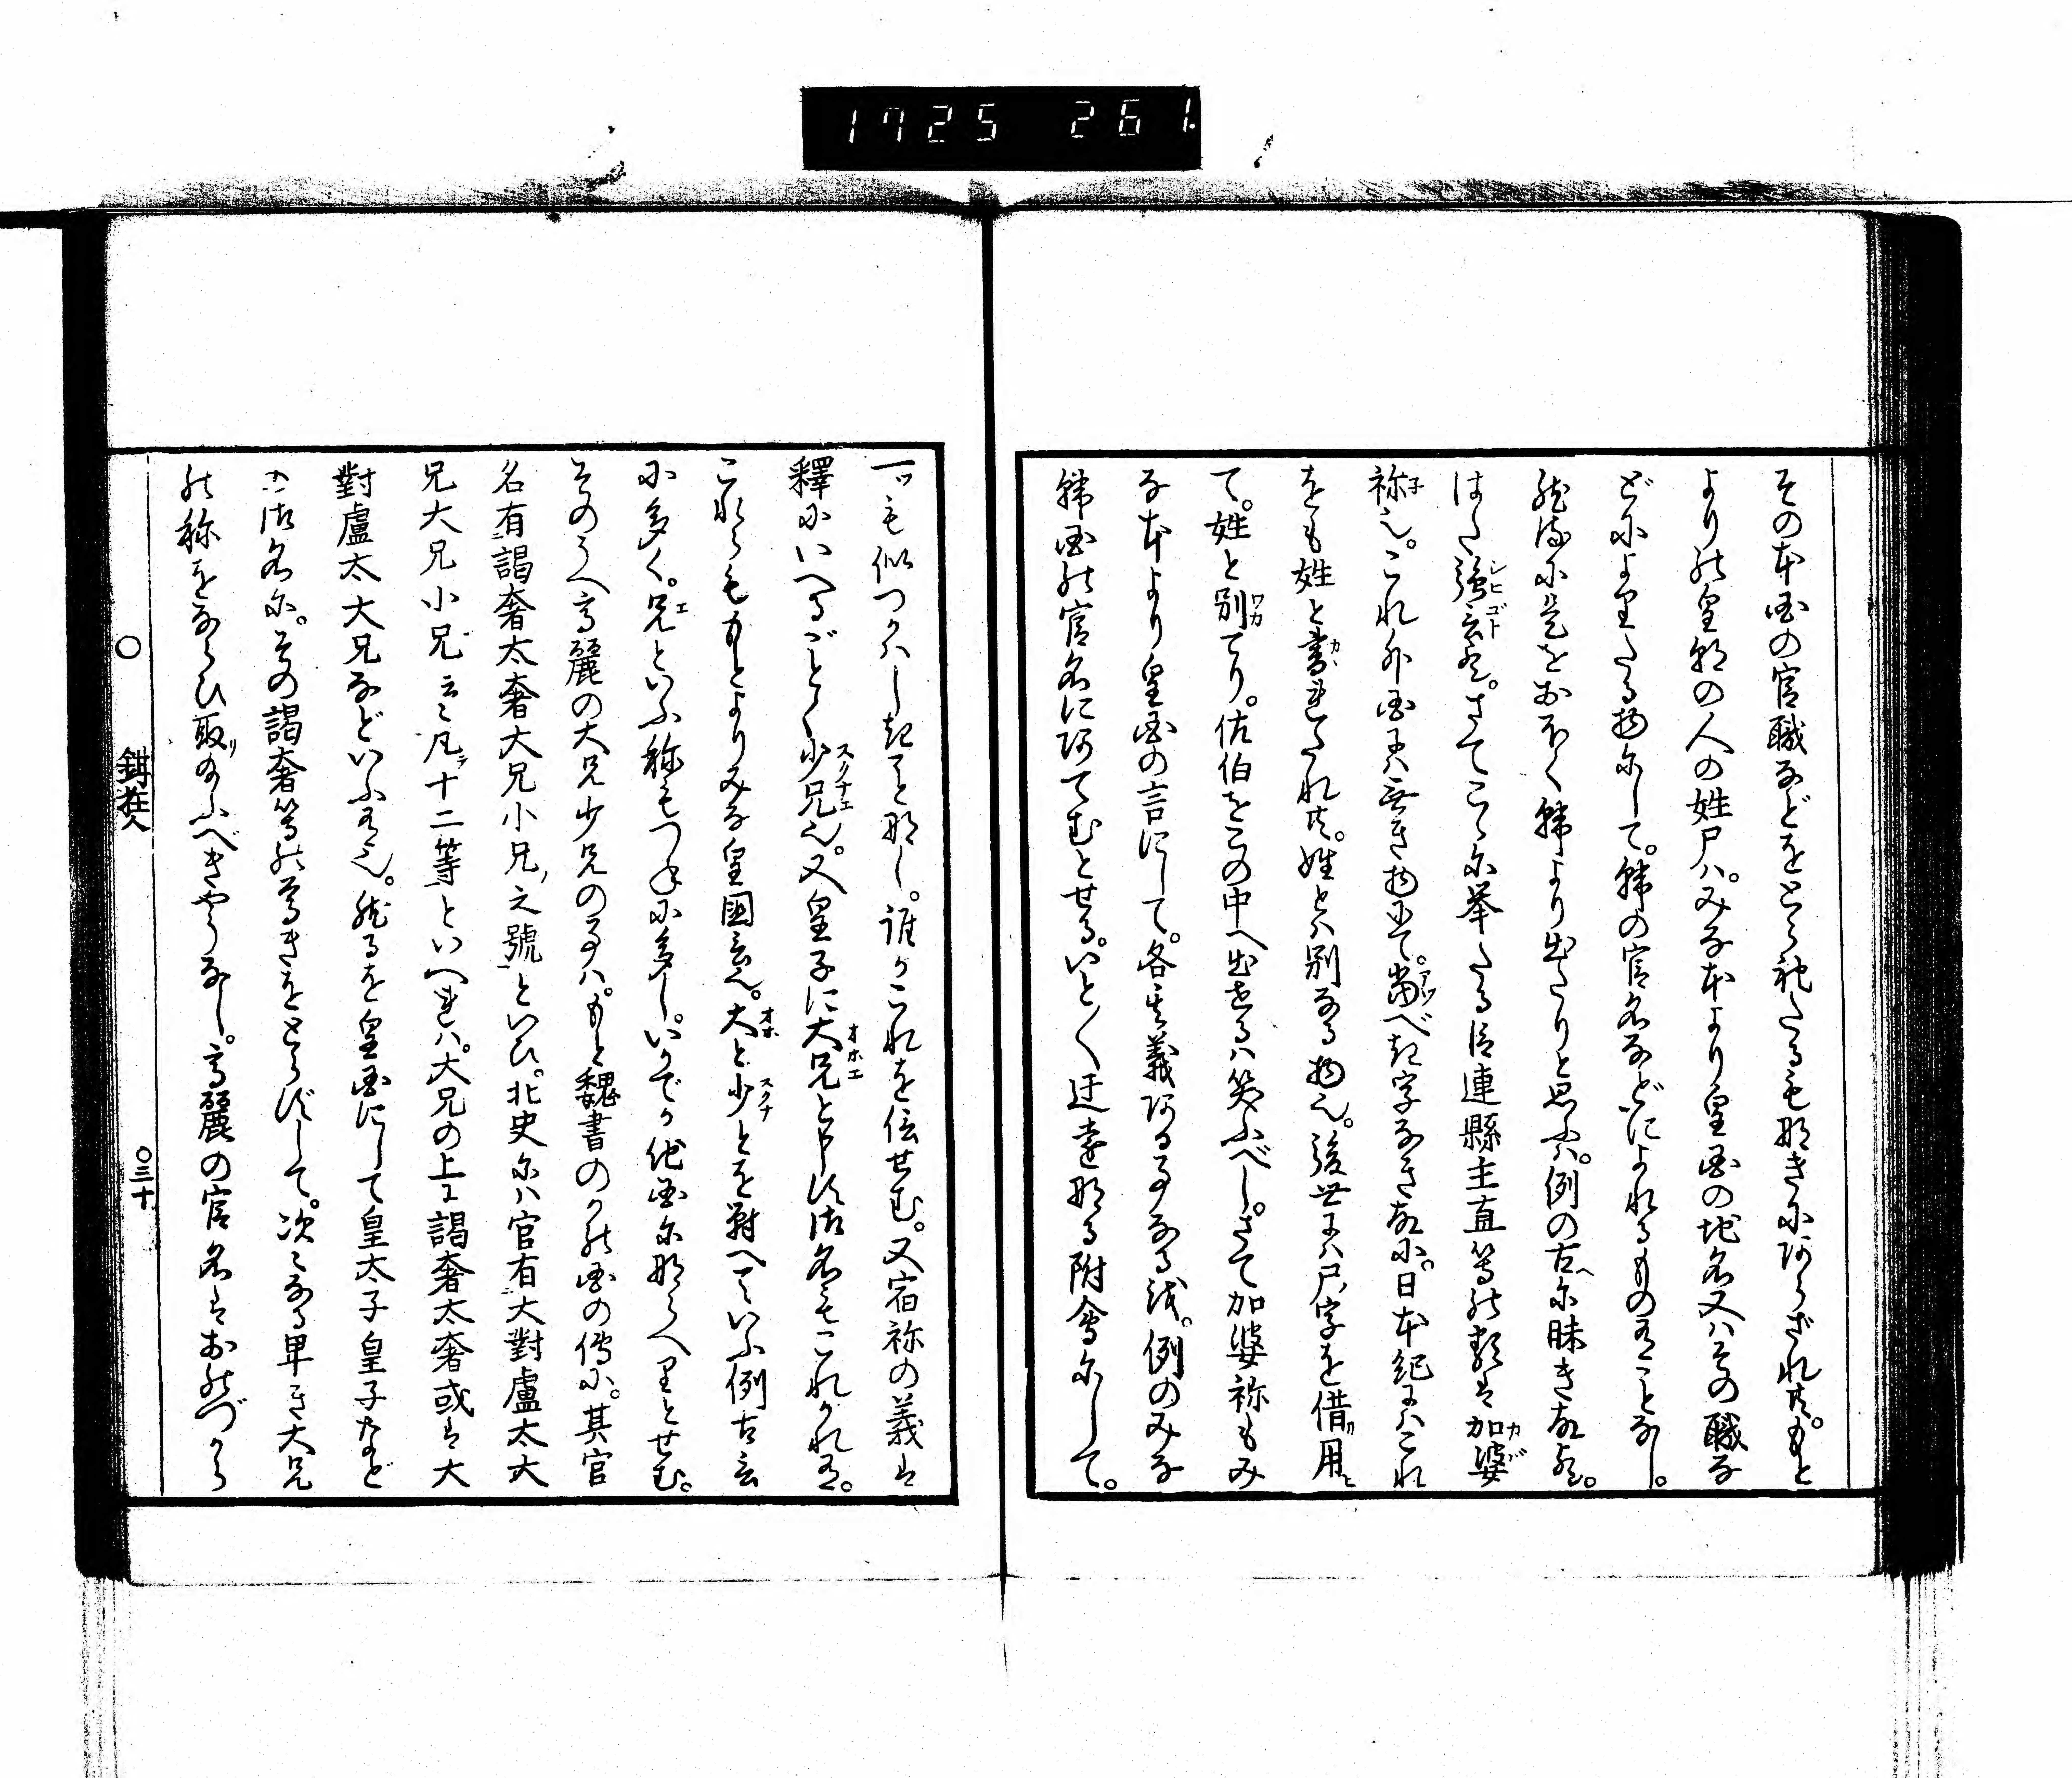 1725 261
その本国の官職などをとら礼たるも那きに阿らざれ共。もと
より能皇朝の人の姓尸ハ。みな本より皇国の地名又ハその職な
どによりたる物尓して。韓の官名などによれるもの有ことなし。
然るに是をおほく韓より出たりと思ふハ。例の古へ尓昧き故也。
はた強言也。さてこゝ尓挙たる臣連縣主直等能類は加婆
祢也。これ外国にハ無き物にて。当べき字なき故に。日本紀にハこれ
をも姓と書れたれ共。姓とハ別なる物也。後世にハ尸ノ字を借リ用ヒ
て。姓と別てり。佐伯をこの中へ出せるハ笑ふべし。さて加婆祢もみ
な本より皇国の言にして。各其義阿る事なる越。例のみな
韓国能官名に阿てむとせる。いと〱迂遠那る附會尓して。
一ツも似つかハしきこと那し。誰かこれを信せむ。又宿祢の義は
釋にいへるごとく少兄也。又皇子に大兄と申す御名もこれかれ有。
これらももとよりみな皇国言也。大と少とを對へていふ例古言
に多く。兄といふ称もつねに多し。いかでか他国尓那らへりとせむ。
そのうへ高麗の大兄少兄の事ハ。もと魏書のかの国の傳に。其官
名有謁奢太奢大兄小兄ノ之號といひ。北史尓ハ官有大對盧太大
兄大兄小兄云〻凡テ十二等といへれハ。大兄の上に謁奢太奢或は大
對盧太大兄などいふ有也。然るを皇国にして皇太子皇子など
の御名尓。その謁奢等能尊きをとらずして。次〻なる卑き大兄
能称をならひ取リ給ふべきやうなし。高麗の官名はおのづから
○ 鉗狂人 ○三十